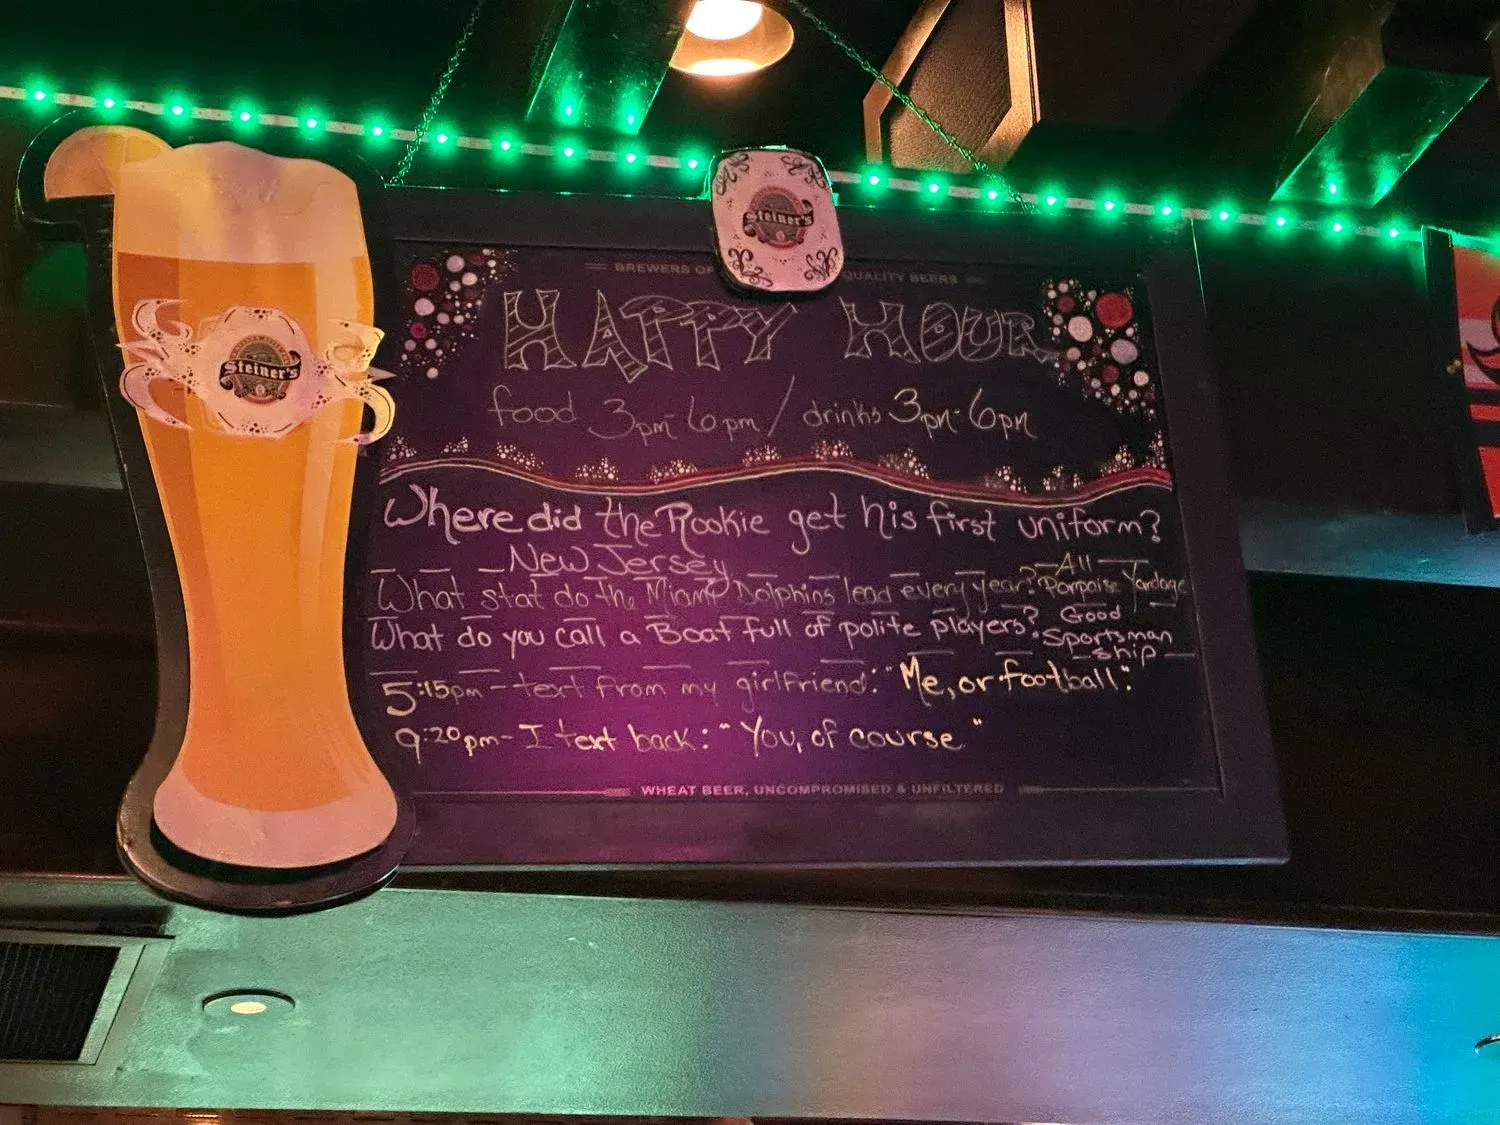 Steiner's
Steiner's
BREWERS OF QUALITY BEERS
HAPPY HOUR
food 3pm-6pm / drinks 3pm-6pm
Where did the Rookie get his first uniform?
New Jersey
What stat do the Miami Dolphins lead every year? All Porpoise Yardage
What do you call a Boat full of polite players? Good Sportsman ship
5:15pm - text from my girlfriend: "Me, or football"
9:20pm - I text back: "You, of course"
WHEAT BEER, UNCOMPROMISED & UNFILTERED